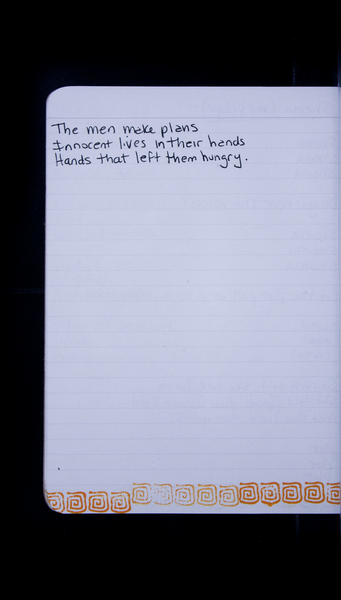 The men make plans
Innocent lives in their hands
Hands that left them hungry.